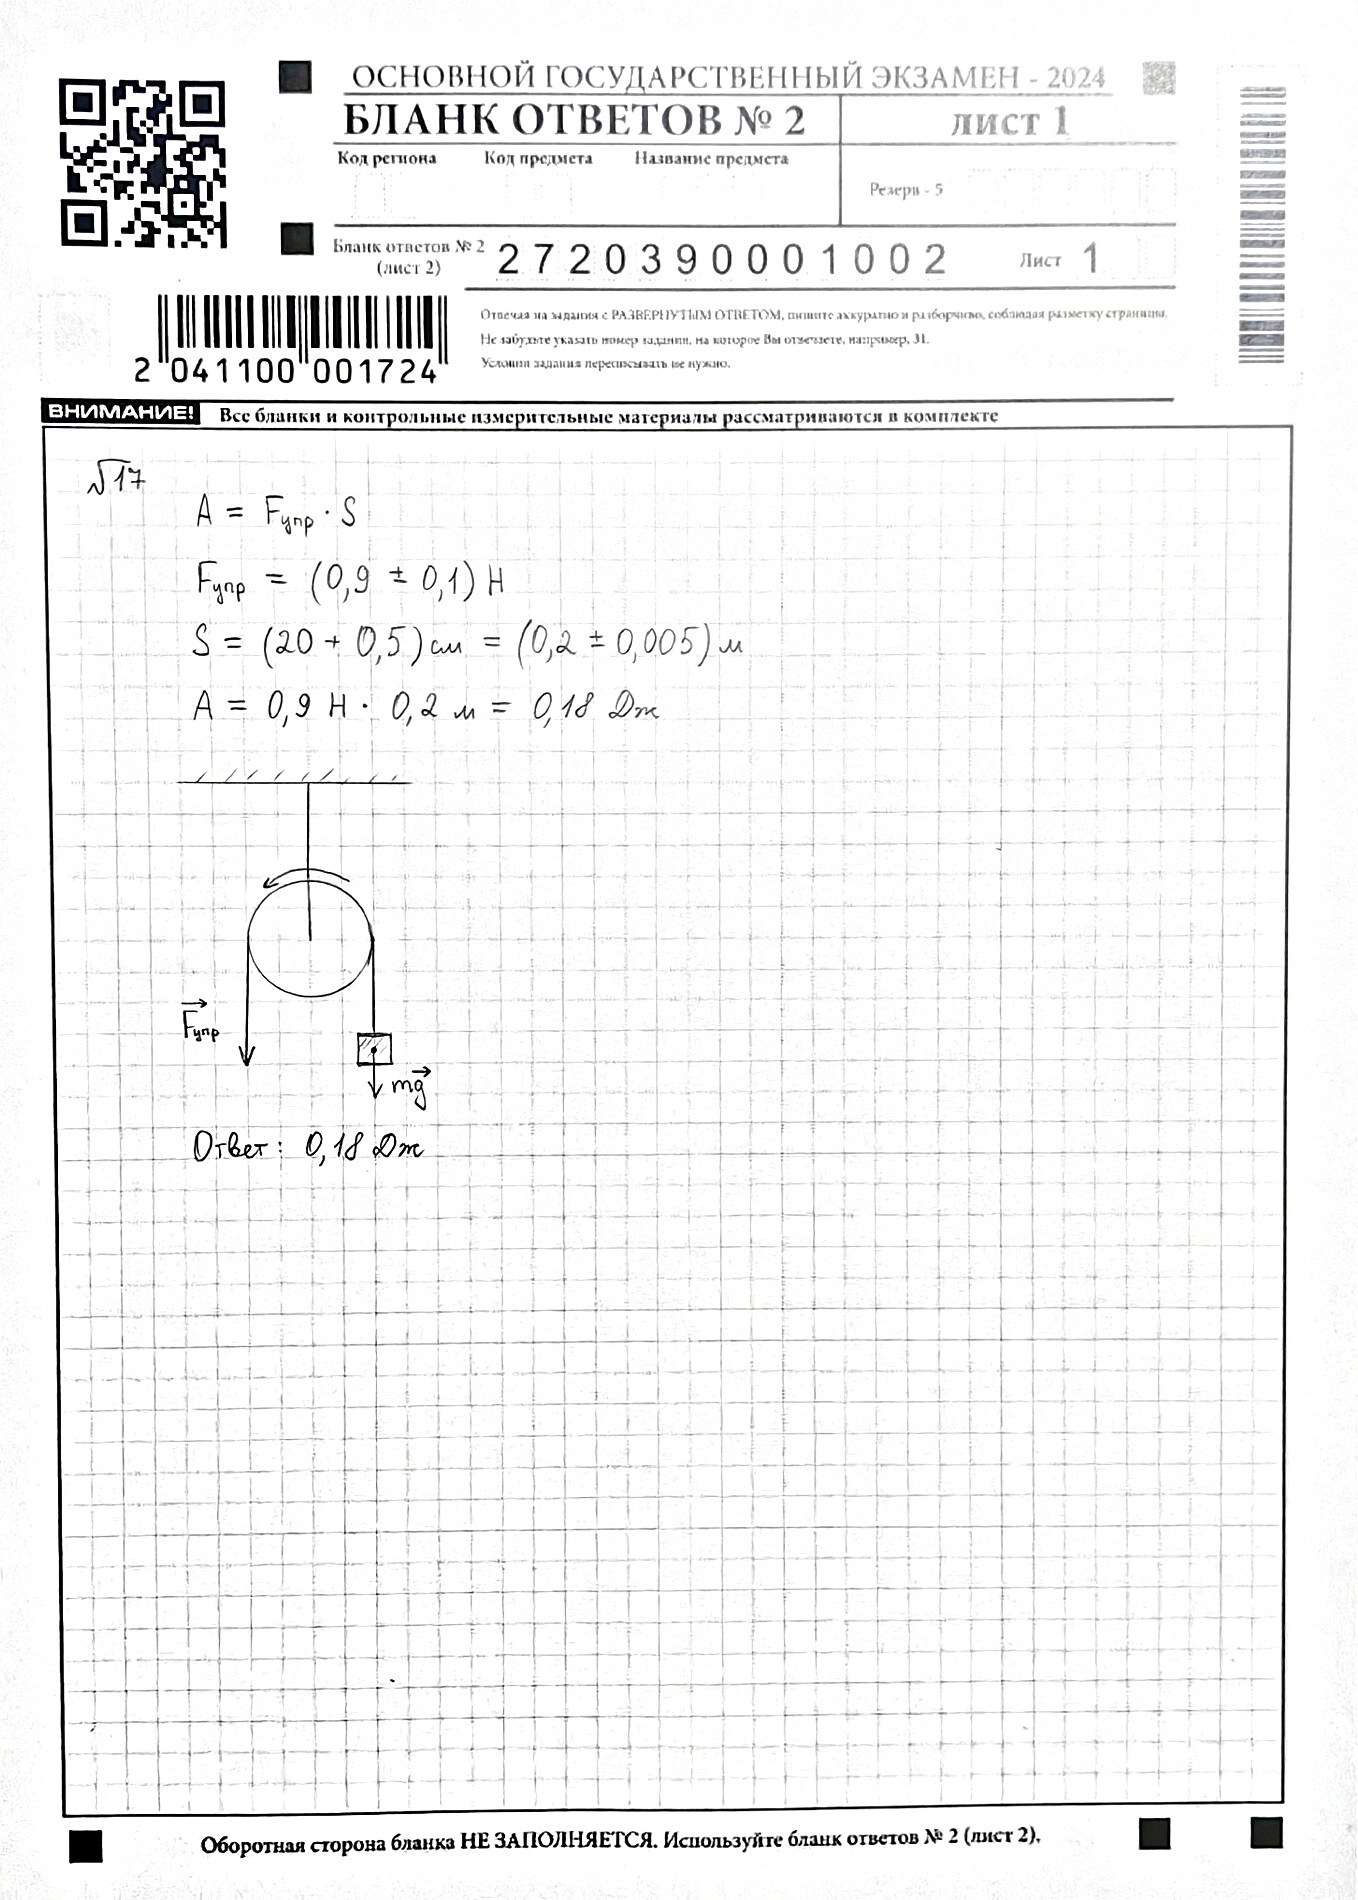 ОСНОВНОЙ ГОСУДАРСТВЕННЫЙ ЭКЗАМЕН - 2024
БЛАНК ОТВЕТОВ № 2
ЛИСТ 1
Код региона Код предмета Название предмета
Резерв - 5
Бланк ответов № 2 (лист 2) 2720390001002 Лист 1
Отвечая на задания с РАЗВЕРНУТЫМ ОТВЕТОМ, пишите аккуратно и разборчиво, соблюдая разметку страницы.
Не забудьте указать номер задания, на которое Вы отвечаете, например, 31.
Условия задания переписывать не нужно.
2 041100 001724
ВНИМАНИЕ! Все бланки и контрольные измерительные материалы рассматриваются в комплекте
№17
A = Fупр · S
Fупр = (0,9 ± 0,1) Н
S = (20 + 0,5) см = (0,2 ± 0,005) м
A = 0,9 Н · 0,2 м = 0,18 Дж
Fупр
mg
Ответ: 0,18 Дж
Оборотная сторона бланка НЕ ЗАПОЛНЯЕТСЯ. Используйте бланк ответов № 2 (лист 2).